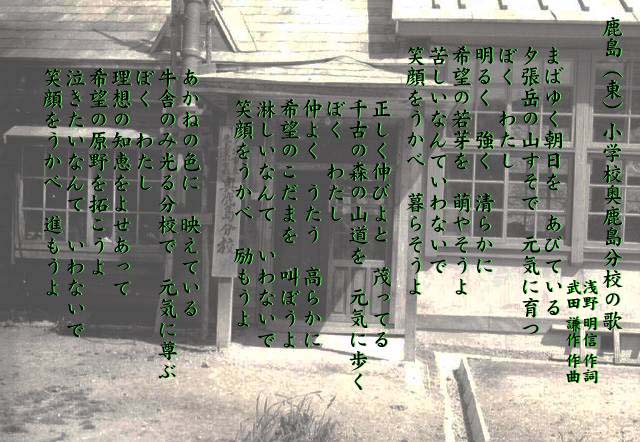 鹿島（東）小学校奥鹿島分校の歌
浅野 明信 作詞
武田 謙作 作曲
まばゆく朝日を あびている
夕張岳の山すそで 元気に育つ
ぼく わたし
明るく 強く 清らかに
希望の若芽を 萌やそうよ
苦しいなんていわないで
笑顔をうかべ 暮らそうよ
正しく伸びよと 茂ってる
千古の森の山道を 元気に歩く
ぼく わたし
仲よく うたう 高らかに
希望のこだまを 叫ぼうよ
淋しいなんて いわないで
笑顔をうかべ 励もうよ
あかねの色に 映えている
牛舎のみ光る分校で 元気に尊ぶ
ぼく わたし
理想の知恵をよせあって
希望の原野を拓こうよ
泣きたいなんて いわないで
笑顔をうかべ 進もうよ
鹿島分校